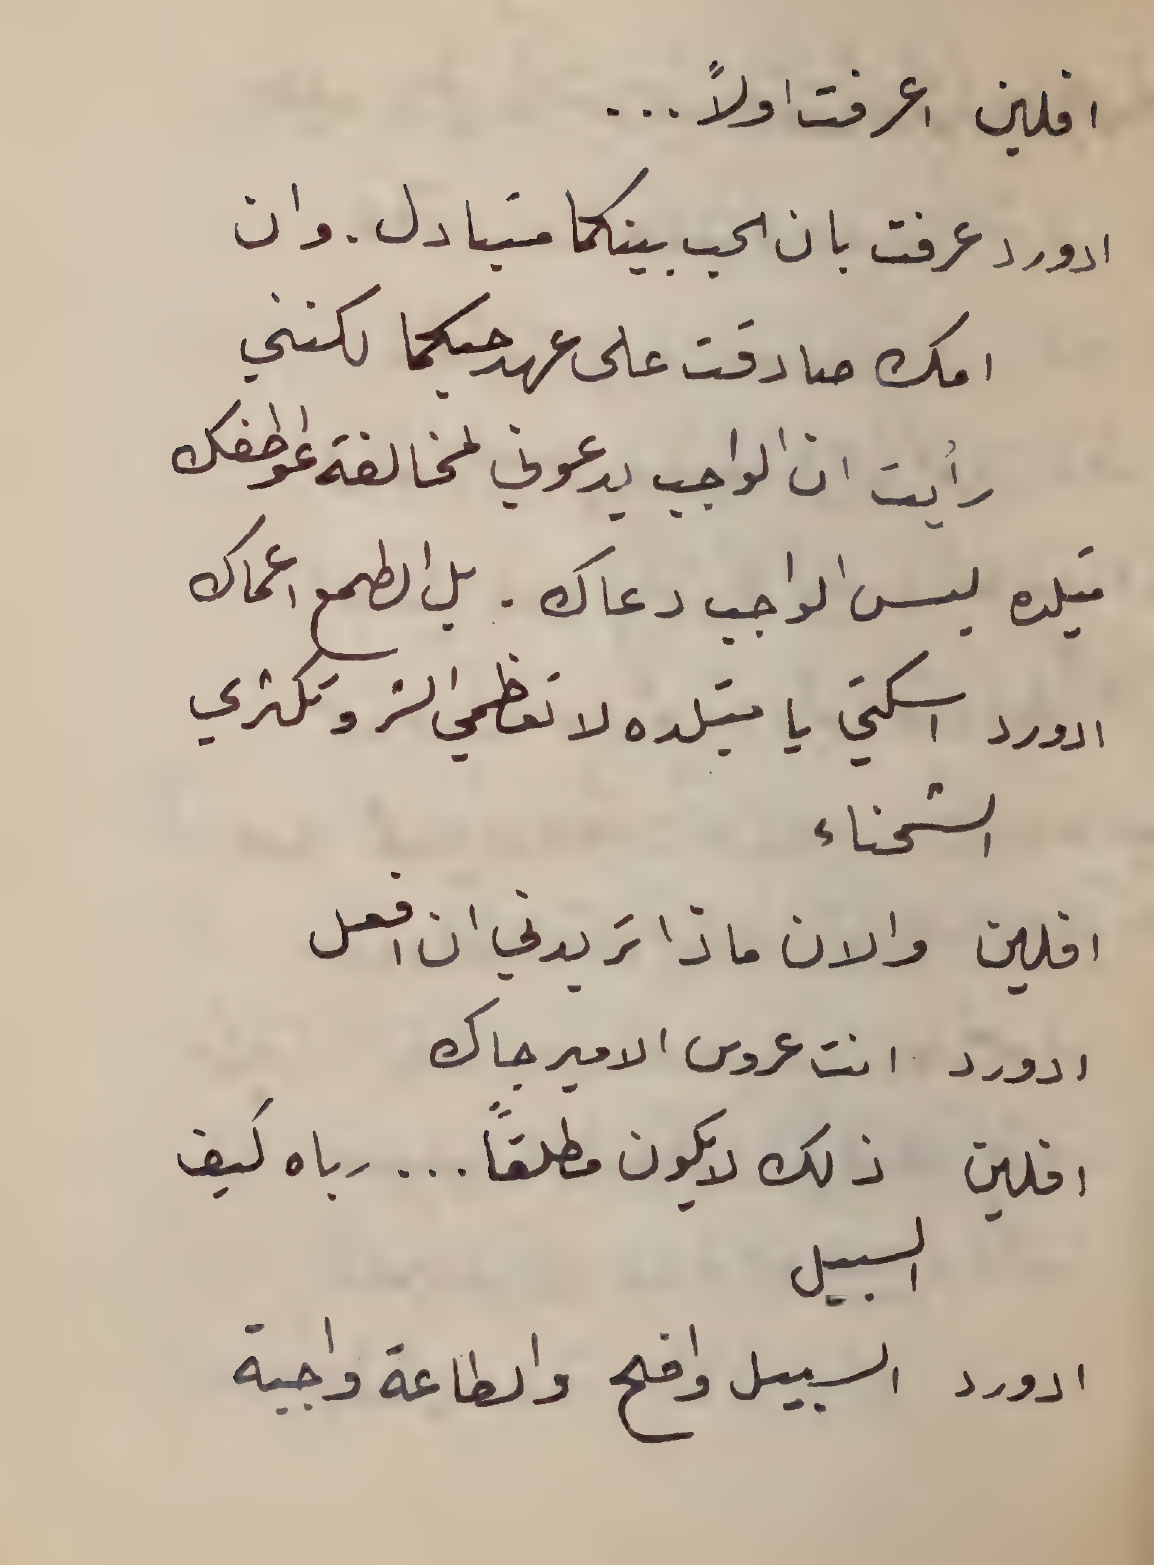 افلين اعرفت اولاً...
ادورد عرفت بان الحب بينكما متبادل. وان
امك صادقت على عهد حبكما لكنني
رأيت ان الواجب يدعوني لمخالفة عواطفك
متيلده ليس الواجب دعاك. بل الطمع اعماك
ادورد اسكتي يا متيلده لا تعظمي الشر وتكثري
الشحناء
افلين والان ماذا تريدني ان افعل
ادورد انت عروس الامير جاك
افلين ذلك لا يكون مطلقاً... رباه كيف
السبيل
ادورد السبيل واضح والطاعة واجبة